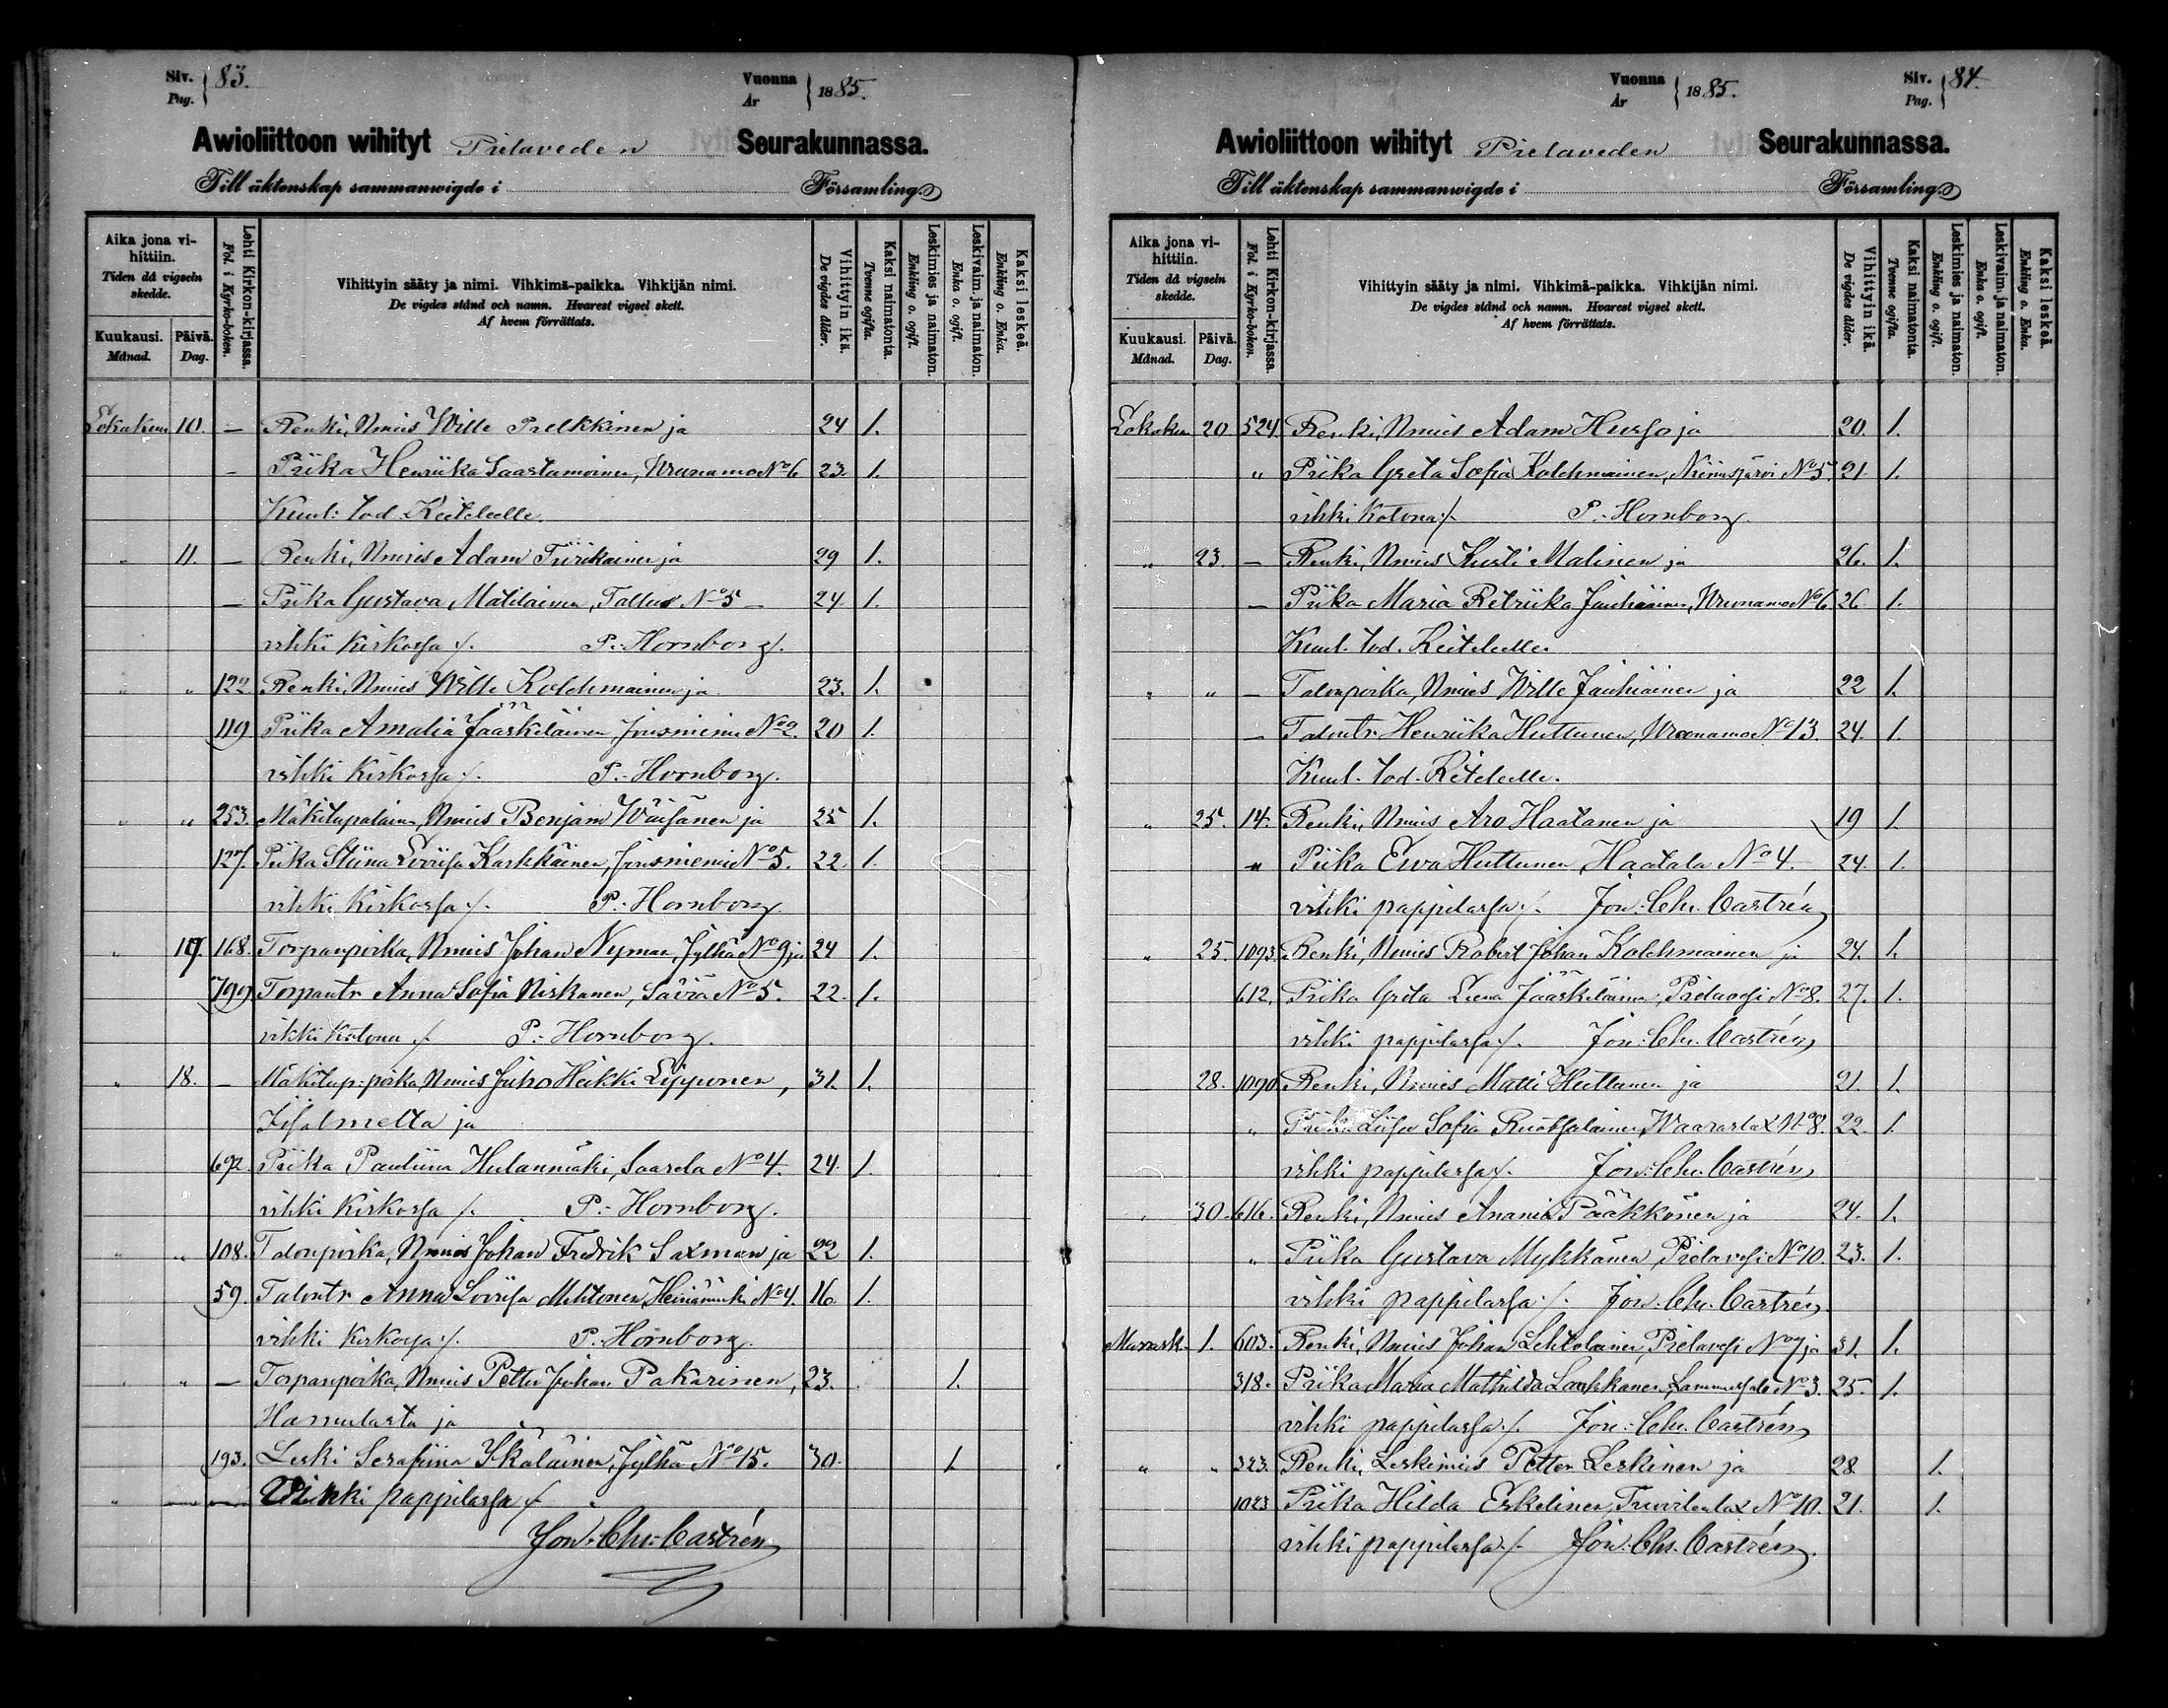 Siv. Pag. 83.
Vuonna År 1885.
Awioliittoon wihityt Pielaveden Seurakunnassa.
Till äktenskap sammanwigde i Församling.
Aika jona vihittiin. Tiden då vigseln skedde.
Kuukausi. Månad.
Päivä. Dag.
Lehti Kirkon-kirjassa. Fol. i Kyrko-boken.
Vihittyin sääty ja nimi. Vihkimä-paikka. Vihkijän nimi.
De vigdes stånd och namn. Hvarest vigsel skett.
Af hvem förrättats.
Vihittyin ikä. De vigdes ålder.
Kaksi naimatonta. Tvenne ogifta.
Leskimies ja naimaton. Enkling o. ogift.
Leskivaim. ja naimaton. Enka o. ogift.
Kaksi leskeä. Enkling o. Enka.
Lokakuu 10. — Renki, Nmies Wille Pulkkinen ja 24 1.
— Piika Henriika Saastamoinen, Wuonamo No 6 23. 1.
Kuul: tod. Keiteleelle.
" 11. — Renki, Nmies Adam Tiirikainen ja 29 1.
— Piika Gustava Matilainen, Tallus No 5 — 24. 1.
vihki kirkossa /. P. Hornborg.
" " 122 Renki, Nmies Wille Kolehmainen ja 23. 1.
119 Piika Amalia Jääskeläinen, Jousniemi No 2. 20 1.
vihki kirkossa /. P. Hornborg.
" " 253. Mäkitupalainen, Nmies Benjam Wäisänen ja 25 1.
127. Piika Stiina Loviisa Karhkäinen, Jousniemi No 5. 22. 1.
vihki kirkossa /. P. Hornborg.
" 17. 168. Torpanpoika, Nmies Johan Nyman, Jylhä No 9 ja 24 1.
799 Torpantr Anna Sofia Niskanen, Säviä No 5. 22. 1.
vihki kotona /. P. Hornborg.
" 18. — Mäkitup. poika, Nmies Juho Heikki Lipponen, 31. 1.
Iisalmelta ja
692. Piika Pauliina Hulanmäki, Saarela No 4. 24. 1.
vihki kirkossa /. P. Hornborg.
" " 108. Talonpoika, Nmies Johan Fredrik Saxman ja 22 1.
59. Talontr Anna Loviisa Mehtonen, Heinämäki No 4. 16. 1.
vihki kirkossa /. P. Hornborg.
" " — Torpanpoika, Nmies Petter Johan Pakarinen, 23. 1.
Hamulasta ja
193. Leski Serafiina Ikäläinen, Jylhä No 15. 30. 1.
" — — Vihki pappilassa /.
Jon. Chr. Castrén
Vuonna År 1885.
Siv. Pag. 84.
Awioliittoon wihityt Pielaveden Seurakunnassa.
Till äktenskap sammanwigde i Församling.
Aika jona vihittiin. Tiden då vigseln skedde.
Kuukausi. Månad.
Päivä. Dag.
Lehti Kirkon-kirjassa. Fol. i Kyrko-boken.
Vihittyin sääty ja nimi. Vihkimä-paikka. Vihkijän nimi.
De vigdes stånd och namn. Hvarest vigsel skett.
Af hvem förrättats.
Vihittyin ikä. De vigdes ålder.
Kaksi naimatonta. Tvenne ogifta.
Leskimies ja naimaton. Enkling o. ogift.
Leskivaim. ja naimaton. Enka o. ogift.
Kaksi leskeä. Enkling o. Enka.
Lokakuu 20 524 Renki, Nmies Adam Husso ja 20. 1.
" Piika Greta Sofia Kolehmainen, Niinisjärvi No 5. 21. 1.
vihki kotona /. P. Hornborg.
" 23. — Renki, Nmies Kusti Malinen ja 26. 1.
— Piika Maria Retriika Jauhiainen, Wuonamo No 6 26. 1.
Kuul. tod. Keiteleelle.
" " — Talonpoika, Nmies Wille Jauhiainen ja 22 1.
— Talontr Henriika Huttunen, Wuonamo No 13. 24. 1.
Kuul. tod. Keiteleelle.
" 25. 14. Renki, Nmies Aro Haatanen ja 19 1.
" Piika Ewa Huttunen, Haatala No 4. 24. 1.
vihki pappilassa /. Jon. Chr. Castrén
" 25. 1093. Renki, Nmies Robert Johan Kolehmainen ja 24. 1.
612. Piika Greta Leena Jääskeläinen, Pielavesi No 8. 27. 1.
vihki pappilassa /. Jon. Chr. Castrén
28. 1090 Renki, Nmies Matti Huttunen ja 21. 1.
" Piika Liisa Sofia Ruotsalainen, Waaraslax No 8. 22. 1.
vihki pappilassa /. Jon. Chr. Castrén
" 30. 616. Renki, Nmies Anania Pääkkönen ja 24. 1.
" Piika Gustava Mykkänen, Pielavesi No 10. 23. 1.
vihki pappilassa /. Jon. Chr. Castrén
Marrask. 1. 603. Renki, Nmies Johan Lehtolainen, Pielavesi No 7 ja 31. 1.
318. Piika Maria Mathilda Laukkanen, Lammassalo No 3. 25. 1.
vihki pappilassa /. Jon. Chr. Castrén
" " 323. Renki, Leskimies Petter Leskinen ja 28. 1.
1023 Piika Hilda Eskelinen, Tuovilanlax No 10. 21. 1.
vihki pappilassa /. Jon. Chr. Castrén